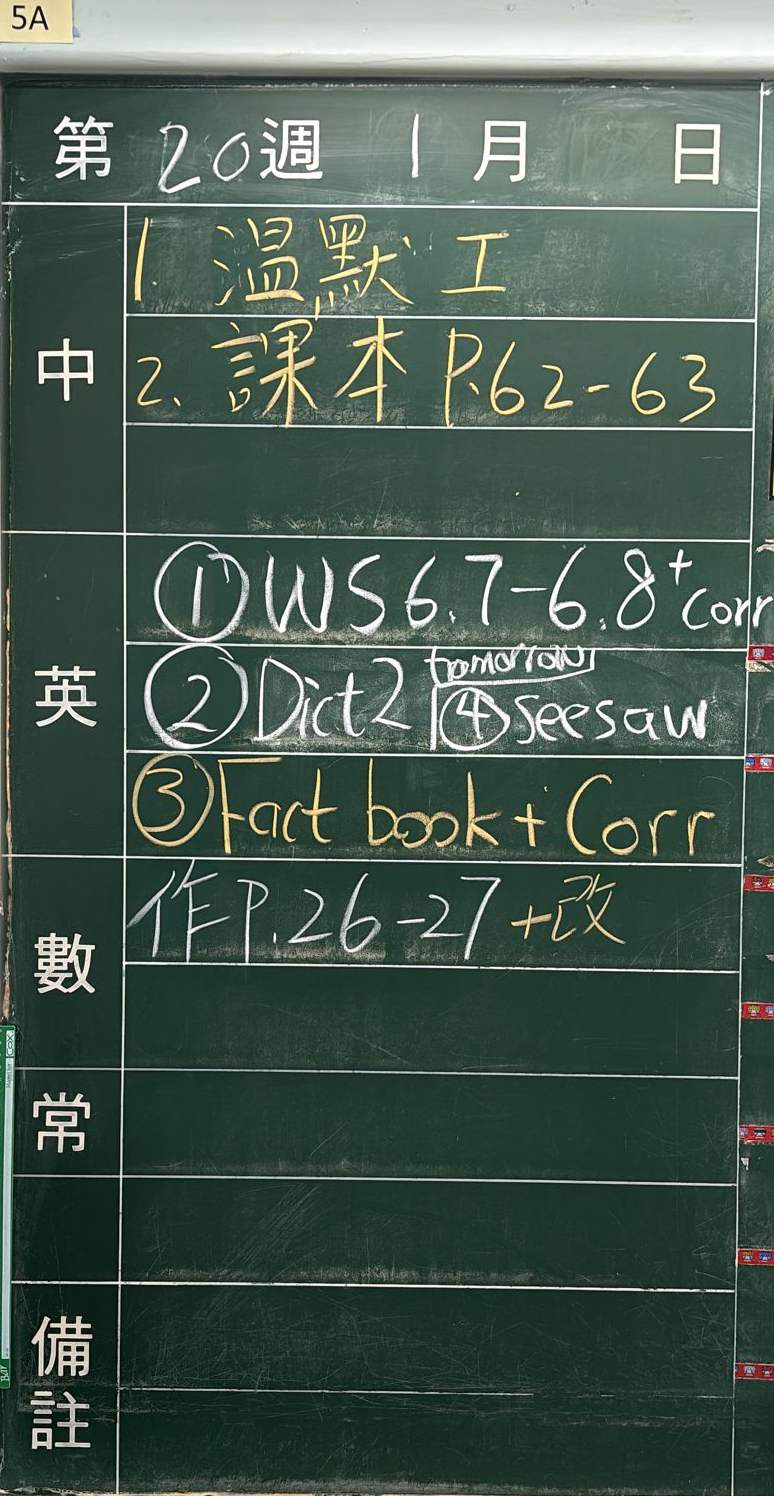 5A
第20週 1月 日
中
1. 溫默工
2. 課本 P.62-63
英
① WS 6.7-6.8 + corr
② Dict 2 tomorrow ④ seesaw
③ Fact book + Corr
數
作P.26-27 +改
常
備註